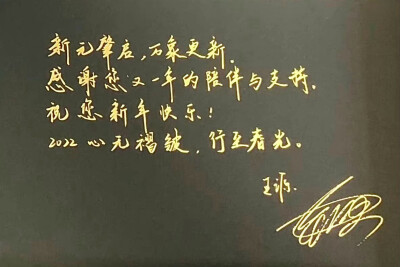 新元肇启，万象更新。
感谢您又一年的陪伴与支持。
祝您新年快乐！
2022 心无褶皱，行至春光。
王源